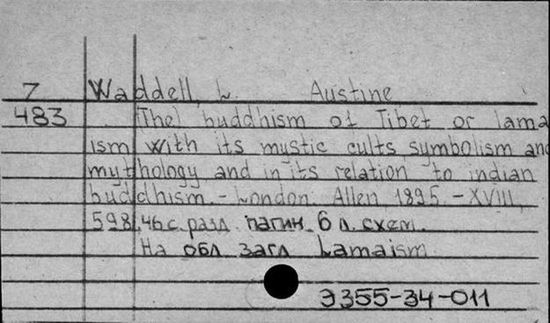 7 Waddell, L. Austine
483 The buddhism of Tibet or lama
ism with its mystic cults, symbolism and
mythology and in its relation to indian
buddhism. - London. Allen 1895. - XVIII,
598, 46 с. разд. пагин. 6 л. схем.
На обл. загл. Lamaism.
Э355-34-011